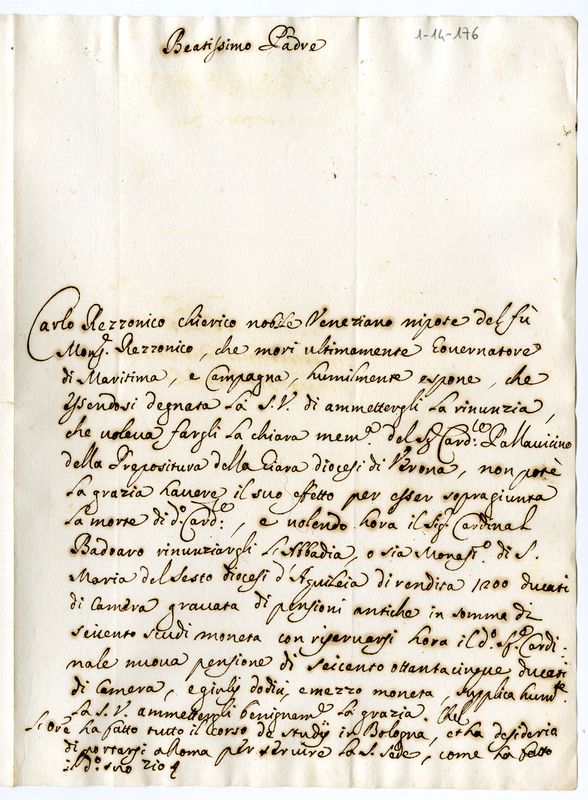 1-14-176
Beatissimo Padre
Carlo Rezzonico chierico nobile Veneziano nipote del fù
Mons.r Rezzonico, che morì ultimamente Governatore
di Maritima, e Campagna, humilmente espone, che
essendosi degnata La S.V. di ammettergli La rinunzia,
che voleva fargli La chiara mem.a del Sig.r Card.le Pallavicino
della Prepositura della Giara diocesi di Verona, non potè
La grazia havere il suo effetto per esser sopragiunta
La morte di d.o Card.le, e volendo hora il Sig.r Cardinal
Badoaro rinunziargli L'Abbadia, o sia Monast.o di S.
Maria del Sesto diocesi d'Aquileia di rendita 1200 ducati
di Camera gravata di pensioni antiche in somma di
seicento scudi moneta con riservarsi hora il d.o Sig.r Cardi-
nale nuova pensione di seicento ottantacinque ducati
di Camera, e giulij dodici, e mezzo moneta, supplica hum.te
La S.V. ammettergli benignam.te La grazia. Che
L'Ore ha fatto tutto il corso de studij in Bologna, et ha desiderio
di portarsi a Roma per servire La S. Sede, come ha fatto
il d.o suo zio